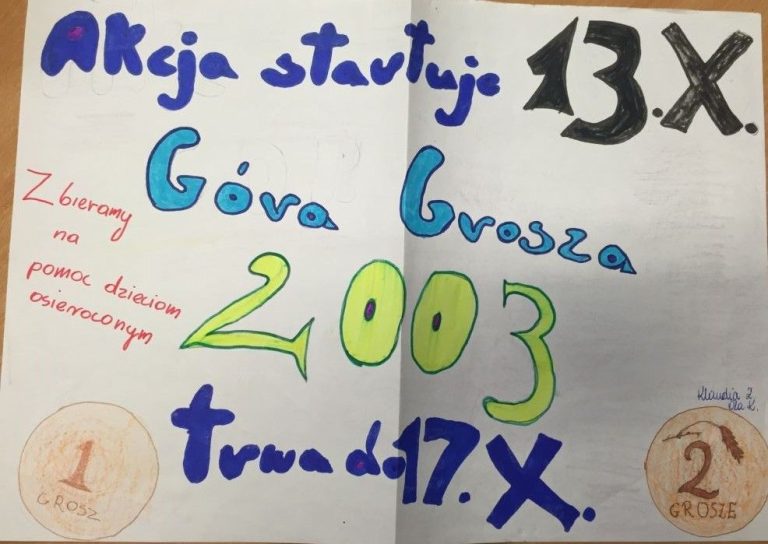 Akcja startuje 13.X.
Góra Grosza
Zbieramy
na
pomoc dzieciom
osieroconym
2003
trwa do 17.X.
Klaudia Ż.
Ola K.
1
GROSZ
2
GROSZE